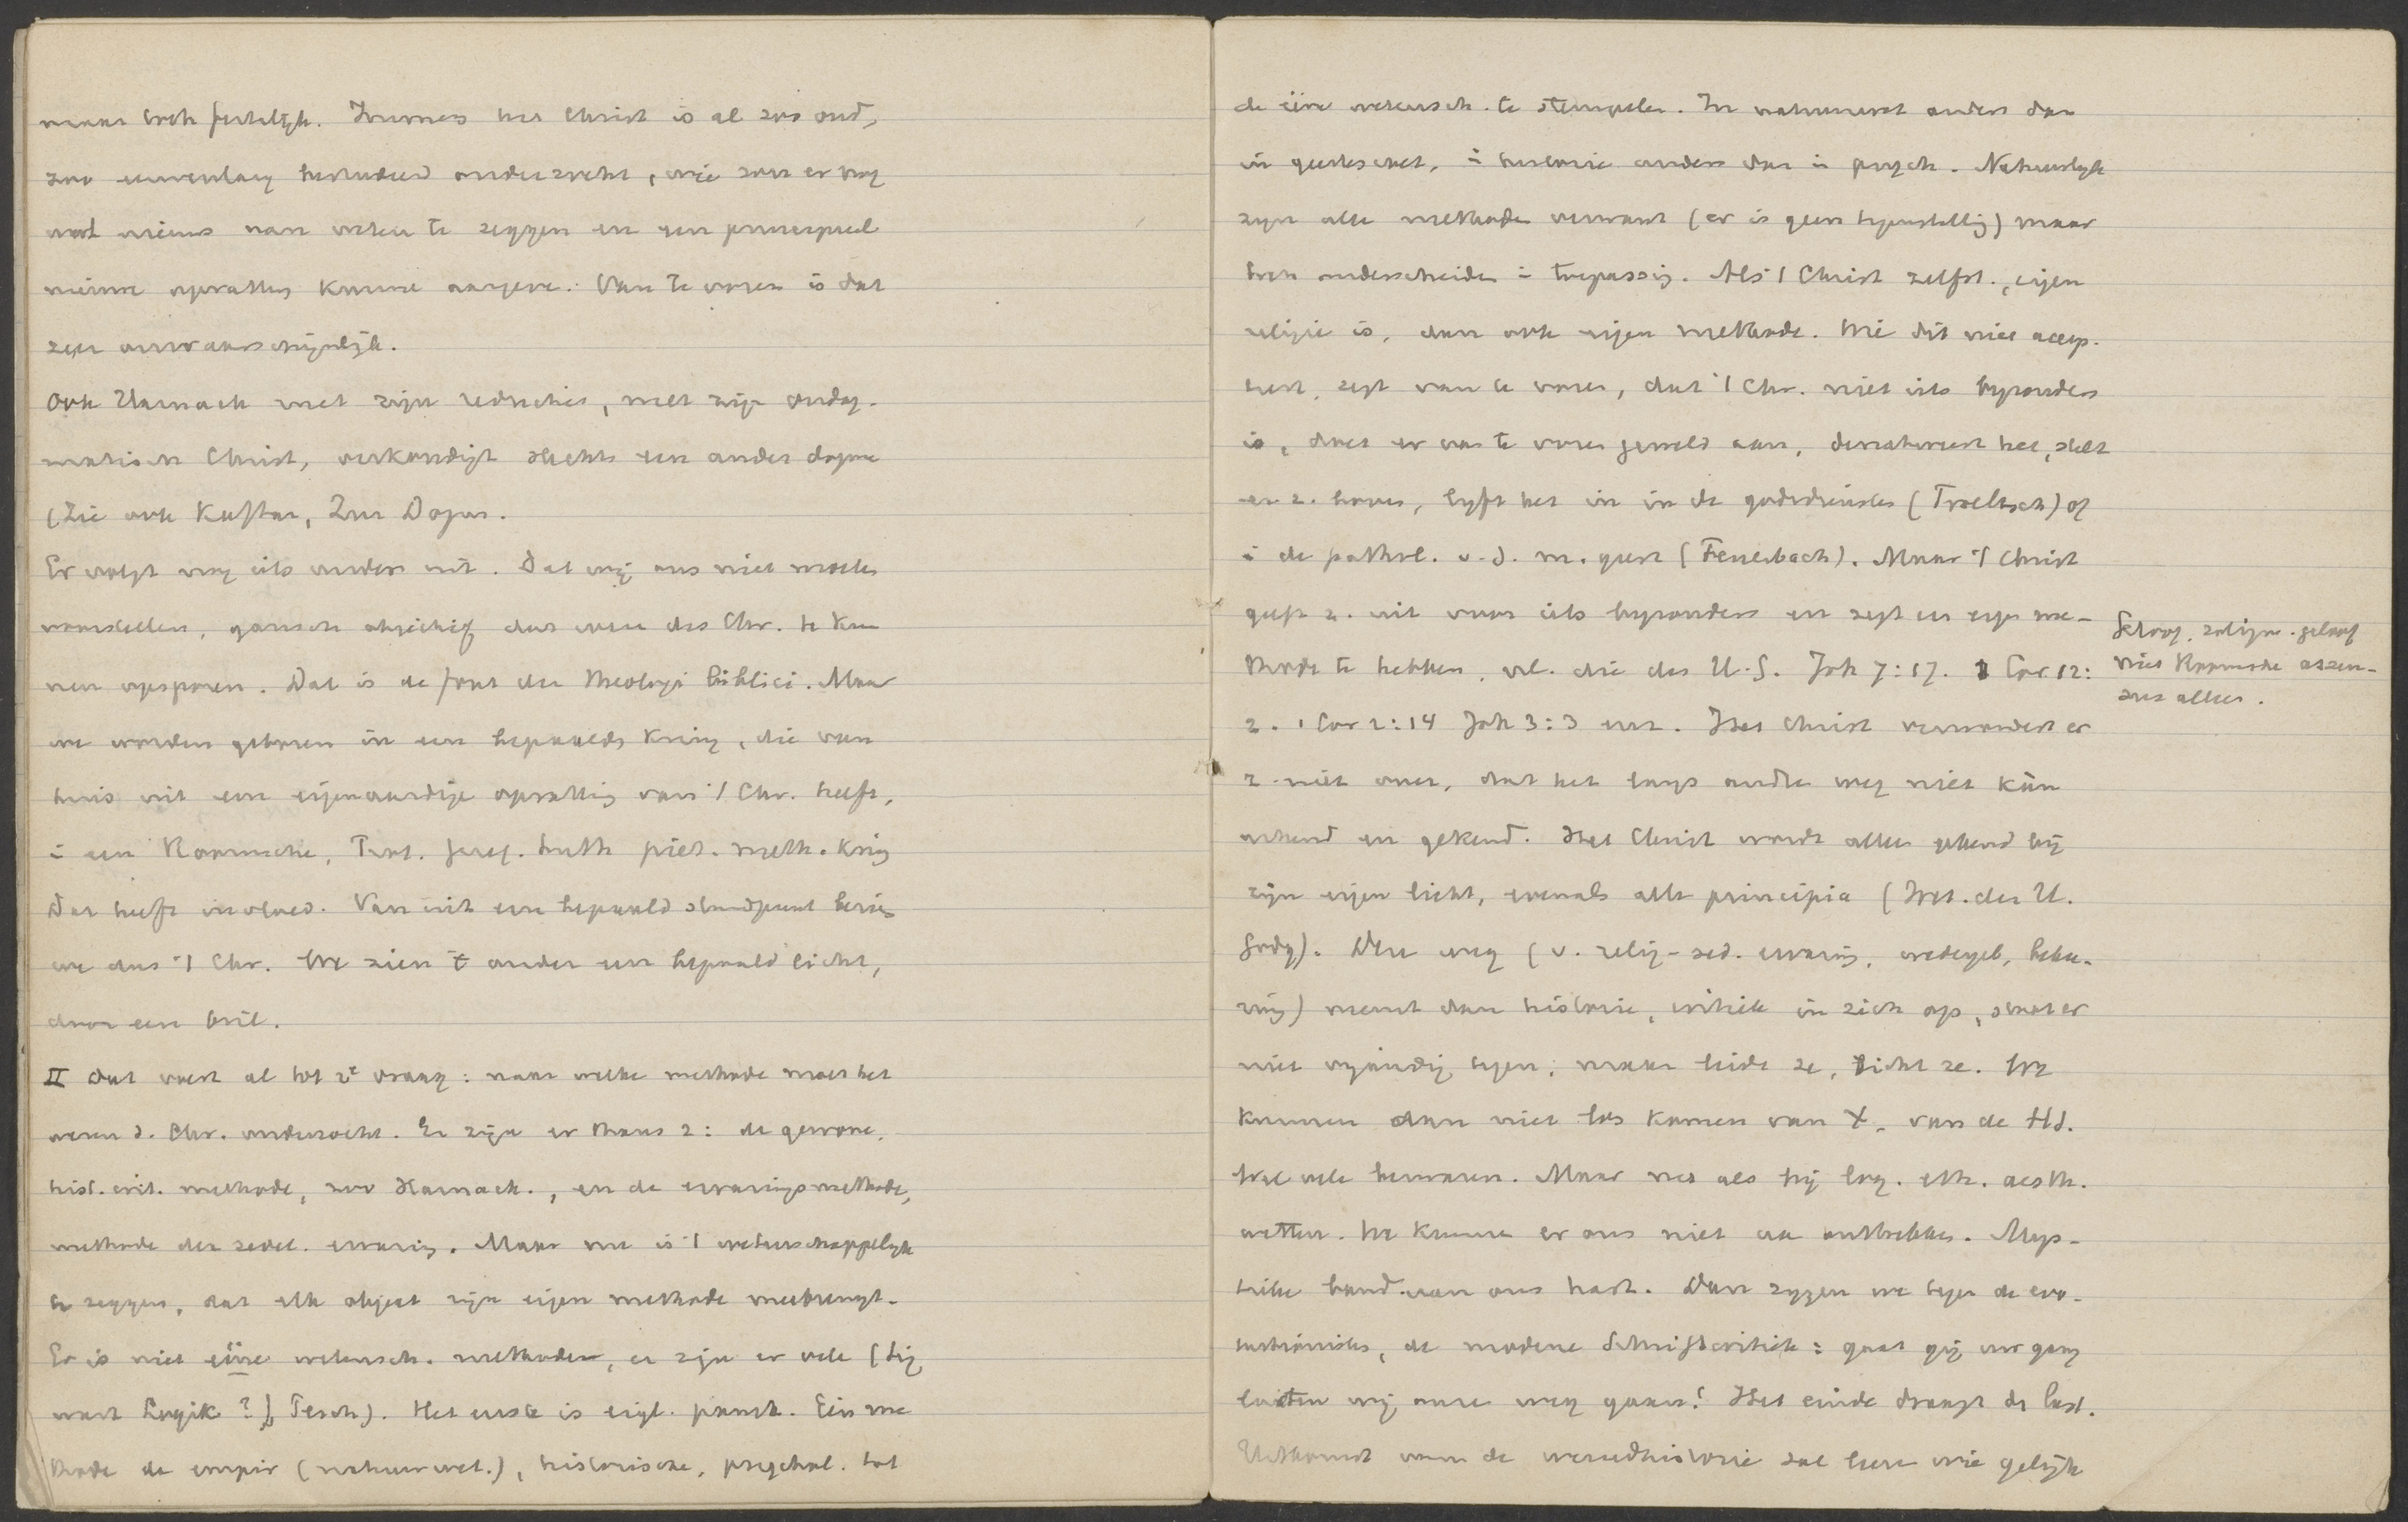 maar toch feitelijk. Immers het Christ is al zoo oud,
zoo eeuwenlang bestudeerd onderzocht, wie zou er nog
wat nieuws van weten te zeggen en een principieel
nieuwe opvatting kunne aangeve. Van te voren is dat
zeer onwaarschijnlijk.
Ook Harnack met zijn reductie, met zijn ondog-
matisch Christ, verkondigt slechts een ander dogma
(Zie ook Kaftan, Zur Dogm.
Er volgt nog iets anders uit. Dat wij ons niet moeten
voorstellen, gansch objectief dat wezen des Chr. te kun
nen opsporen. Dat is de fout der theologi biblici. Maar
we worden geboren in een bepaalde kring, die van
huis uit een eigenaardige opvatting van 't Chr. heeft,
i een Roomsche, Prot. geref. luth piet. meth. kring
Dat heeft invloed. Van uit een bepaald standpunt bezien
we dus 't Chr. We zien 't onder een bepaald licht,
door een bril.
II Dat voert al tot 2e vraag: naar welke methode moet het
wezen d. Chr. onderzocht. Er zijn er thans 2: de gewone,
hist. crit. methode, zoo Harnack., en de ervaringsmethode,
methode der zedel. ervaring. Maar nu is 't wetenschappelijk
te zeggen, dat elk object zijn eigen methode meebrengt.
Er is niet eéne wetensch. methoden, er zijn er vele (Sig
wart Logik?) Tesch). Het eerste is eigl. pantt. Één me
thode de empir (natuurwet.), historische, psychol. tot
de ééne wetensch. te stempelen. In natuurwet anders dan
in geesteswet, i historie anders dan i psych. Natuurlijk
zijn alle methoden verwant (er is geen tegenstelling) maar
toch onderscheiden i toepassing. Als 't Christ zelfst., eigen
religie is, dan ook eigen methode. Wie dit niet accep-
teert, zegt van te voren, dat 't Chr. niet iets byzonders
is, doet er van te voren geweld aan, denatureert het, stelt
er z. boven, lyft het in in de godsdiensten (Troeltsch) of
i de pathol. v.d. m. geest (Feuerbach). Maar 't Christ
geeft z. uit voor iets byzonders en zegt een eigen me-
thode te hebben, nl. die des H.G. Joh 7:17. 1 Cor 12:
2. 1 Cor 2:14 Joh 3:3 enz. Het Christ verwondert er
z. niet over, dat het langs andre weg niet kàn
erkend en gekend. Het Christ wordt alleen gekend bij
zijn eigen licht, evenals alle principia (Wet. der H.
Godg). Die weg (v. relig-zed. ervaring, wedergeb, bekee-
ring) neemt dan historie, critiek in zich op, staat er
niet vyandig tegen, maar leidt ze, richt ze. We
kunnen dan niet los komen van X, van de Hd.
Wel vele bezwaren. Maar net als bij log. eth. aesth.
wetten. We kunnen er ons niet aan onttrekken. Mys-
tieke band van ons hart. Dan zeggen we tegen de evo-
lutionisten, de moderne Schriftcritiek: gaat gij uw gang
laten wij onze weg gaan! Het einde draagt de last.
Uitkomst van de wereldhistorie zal leere wie gelijk
Geloof, zaligm. geloof
niet Roomsche assen-
sus alleen.